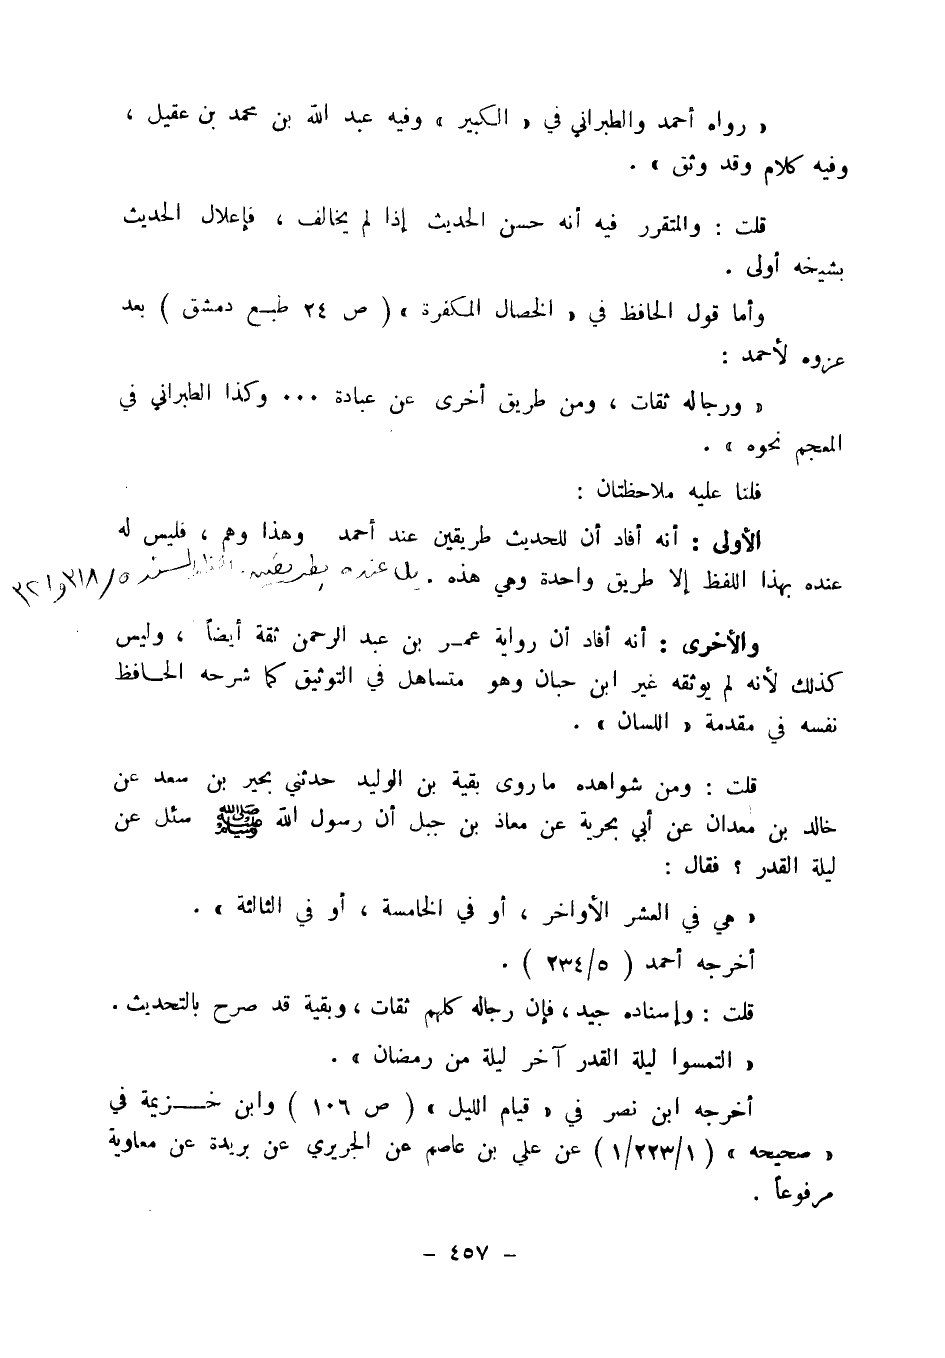 « رواه أحمد والطبراني في « الكبير » وفيه عبد الله بن محمد بن عقيل ،
وفيه كلام وقد وثق » .
قلت : والمتقرر فيه أنه حسن الحديث إذا لم يخالف ، فإعلال الحديث
بشيخه أولى .
وأما قول الحافظ في « الخصال المكفرة » ( ص ٢٤ طبع دمشق ) بعد
عزوه لأحمد :
« ورجاله ثقات ، ومن طريق أخرى عن عبادة ... وكذا الطبراني في
المعجم نحوه » .
فلنا عليه ملاحظتان :
الأولى : أنه أفاد أن للحديث طريقين عند أحمد وهذا وهم ، فليس له
عنده بهذا اللفظ إلا طريق واحدة وهي هذه . بل عنده بطريقين. انظر المسند ٣١٨/٥ و٣٢١
والأخرى : أنه أفاد أن رواية عمر بن عبد الرحمن ثقة أيضاً ، وليس
كذلك لأنه لم يوثقه غير ابن حبان وهو متساهل في التوثيق كما شرحه الحافظ
نفسه في مقدمة « اللسان » .
قلت : ومن شواهده ما روى بقية بن الوليد حدثني بحير بن سعد عن
خالد بن معدان عن أبي بحرية عن معاذ بن جبل أن رسول الله ﷺ سئل عن
ليلة القدر ؟ فقال :
« هي في العشر الأواخر ، أو في الخامسة ، أو في الثالثة » .
أخرجه أحمد ( ٢٣٤/٥ ) .
قلت : وإسناده جيد ، فإن رجاله كلهم ثقات ، وبقية قد صرح بالتحديث .
« التمسوا ليلة القدر آخر ليلة من رمضان » .
أخرجه ابن نصر في « قيام الليل » ( ص ١٠٦ ) وابن خزيمة في
« صحيحه » ( ١/٢٢٣/١ ) عن علي بن عاصم عن الجريري عن بريدة عن معاوية
مرفوعاً .
– ٤٥٧ –